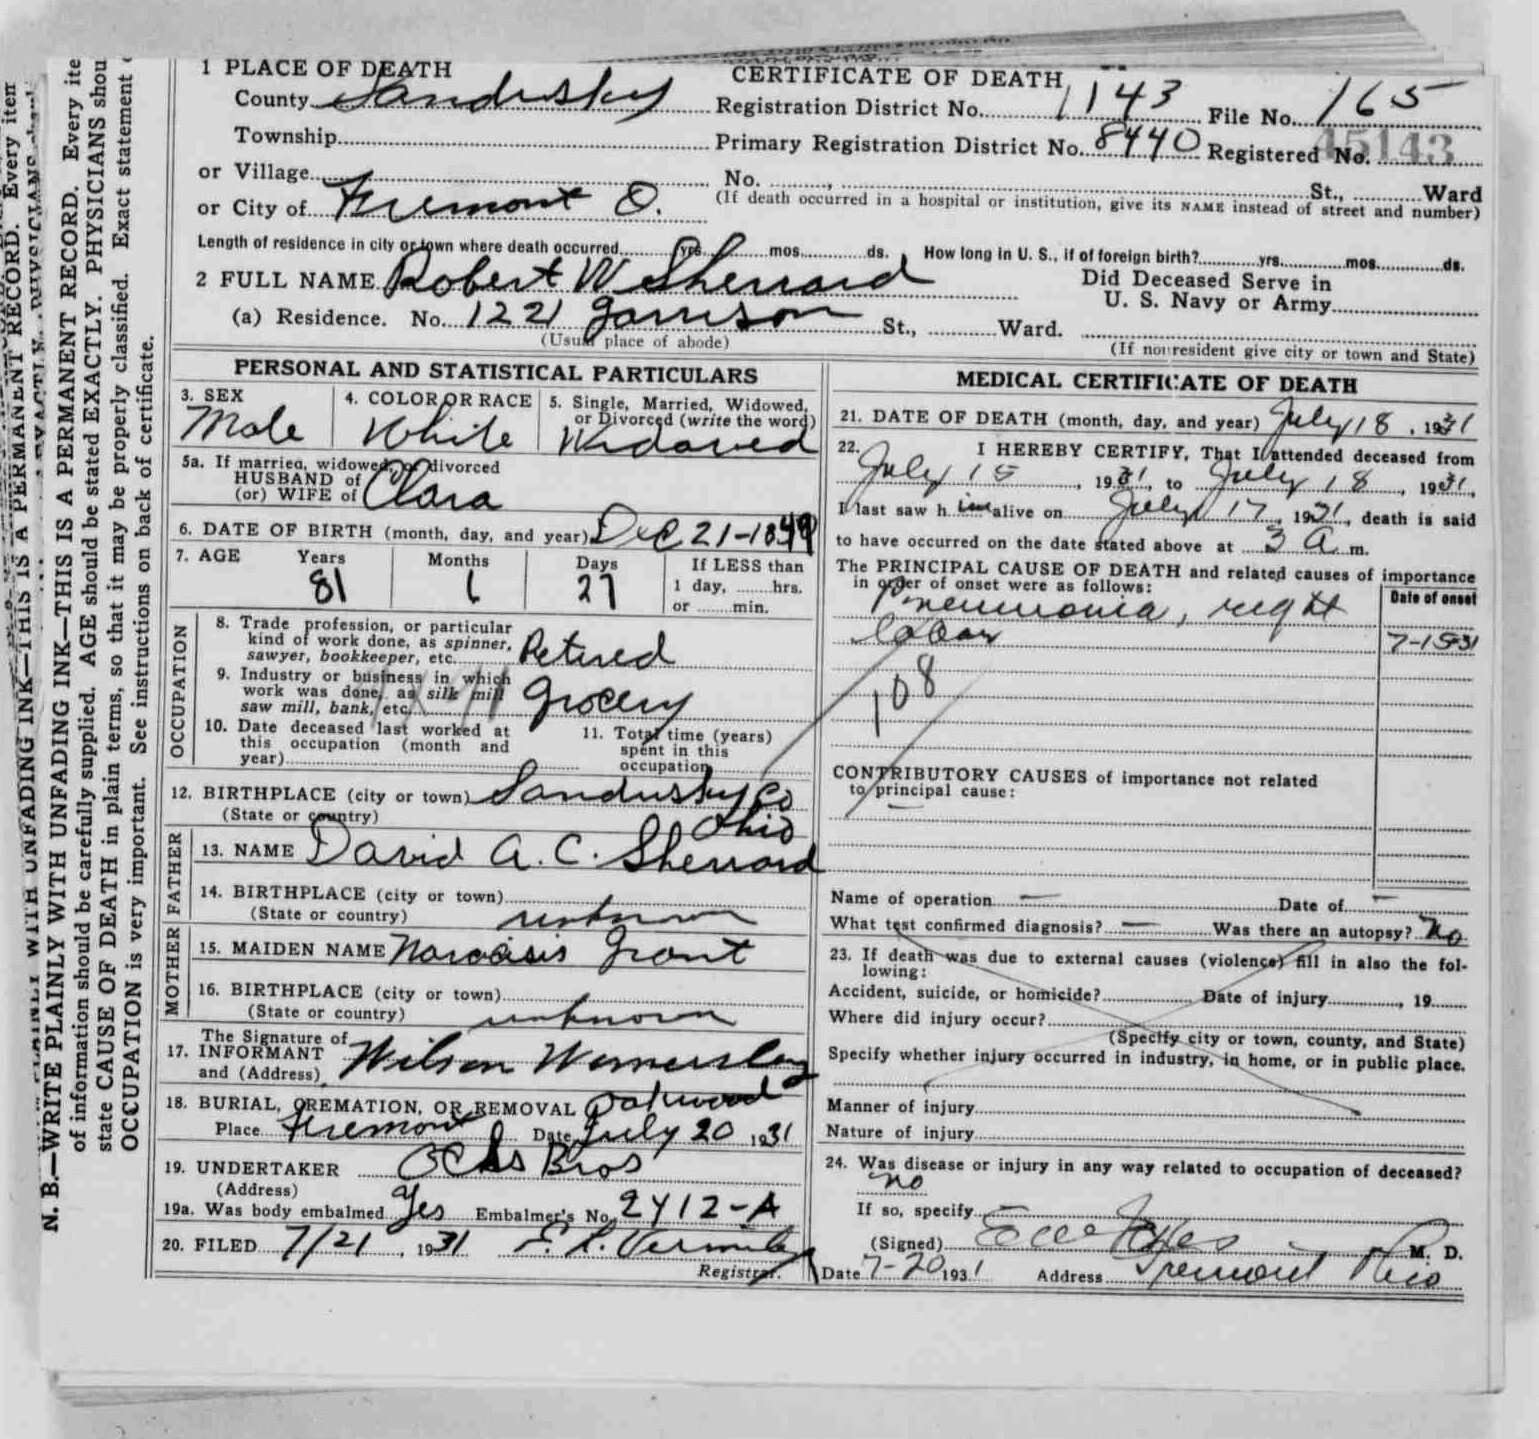 1 PLACE OF DEATH
CERTIFICATE OF DEATH
County Sandusky Registration District No. 1143 File No. 165
Township Primary Registration District No. 8440 Registered No. 45143
or Village No. , St., Ward
or City of Fremont O. (If death occurred in a hospital or institution, give its NAME instead of street and number)
Length of residence in city or town where death occurred yrs. mos. ds. How long in U. S., if of foreign birth? yrs. mos. ds.
2 FULL NAME Robert W Sherrard Did Deceased Serve in
U. S. Navy or Army
(a) Residence. No. 1221 Garrison St., Ward.
(Usual place of abode) (If nonresident give city or town and State)
PERSONAL AND STATISTICAL PARTICULARS
3. SEX 4. COLOR OR RACE 5. Single, Married, Widowed,
or Divorced (write the word)
Male White Widowed
5a. If married, widowed, or divorced
HUSBAND of
(or) WIFE of Clara
6. DATE OF BIRTH (month, day, and year) Dec 21-1849
7. AGE Years Months Days If LESS than
81 27 1 day, hrs.
or min.
OCCUPATION
8. Trade profession, or particular
kind of work done, as spinner,
sawyer, bookkeeper, etc. Retired
9. Industry or business in which
work was done, as silk mill
saw mill, bank, etc. Grocery
10. Date deceased last worked at
this occupation (month and
year)
11. Total time (years)
spent in this
occupation
12. BIRTHPLACE (city or town) Sandusky Co
(State or country) Ohio
FATHER
13. NAME David A. C. Sherrard
14. BIRTHPLACE (city or town)
(State or country) unknown
MOTHER
15. MAIDEN NAME Narcisis Grant
16. BIRTHPLACE (city or town)
(State or country) unknown
The Signature of
17. INFORMANT Wilson Womersley
and (Address)
18. BURIAL, CREMATION, OR REMOVAL Oakwood
Place Fremont Date July 20 1931
19. UNDERTAKER Ochs Bros
(Address)
19a. Was body embalmed Yes Embalmer's No. 2412-A
20. FILED 7/21, 1931
Registrar.
MEDICAL CERTIFICATE OF DEATH
21. DATE OF DEATH (month, day, and year) July 18, 1931
22. I HEREBY CERTIFY, That I attended deceased from
July 15, 1931, to July 18, 1931,
I last saw h im alive on July 17, 1931, death is said
to have occurred on the date stated above at 3 A m.
The PRINCIPAL CAUSE OF DEATH and related causes of importance
in order of onset were as follows: Date of onset
Pneumonia, right
lobar 7-15-31
108
CONTRIBUTORY CAUSES of importance not related
to principal cause:
Name of operation — Date of —
What test confirmed diagnosis? — Was there an autopsy? No
23. If death was due to external causes (violence) fill in also the fol-
lowing:
Accident, suicide, or homicide? Date of injury , 19
Where did injury occur?
(Specify city or town, county, and State)
Specify whether injury occurred in industry, in home, or in public place.
Manner of injury
Nature of injury
24. Was disease or injury in any way related to occupation of deceased?
no
If so, specify
(Signed) M. D.
Date 7-20 1931 Address Fremont Ohio
N. B.—WRITE PLAINLY WITH UNFADING INK—THIS IS A PERMANENT RECORD. Every ite
of information should be carefully supplied. AGE should be stated EXACTLY. PHYSICIANS shou
state CAUSE OF DEATH in plain terms, so that it may be properly classified. Exact statement
OCCUPATION is very important. See instructions on back of certificate.